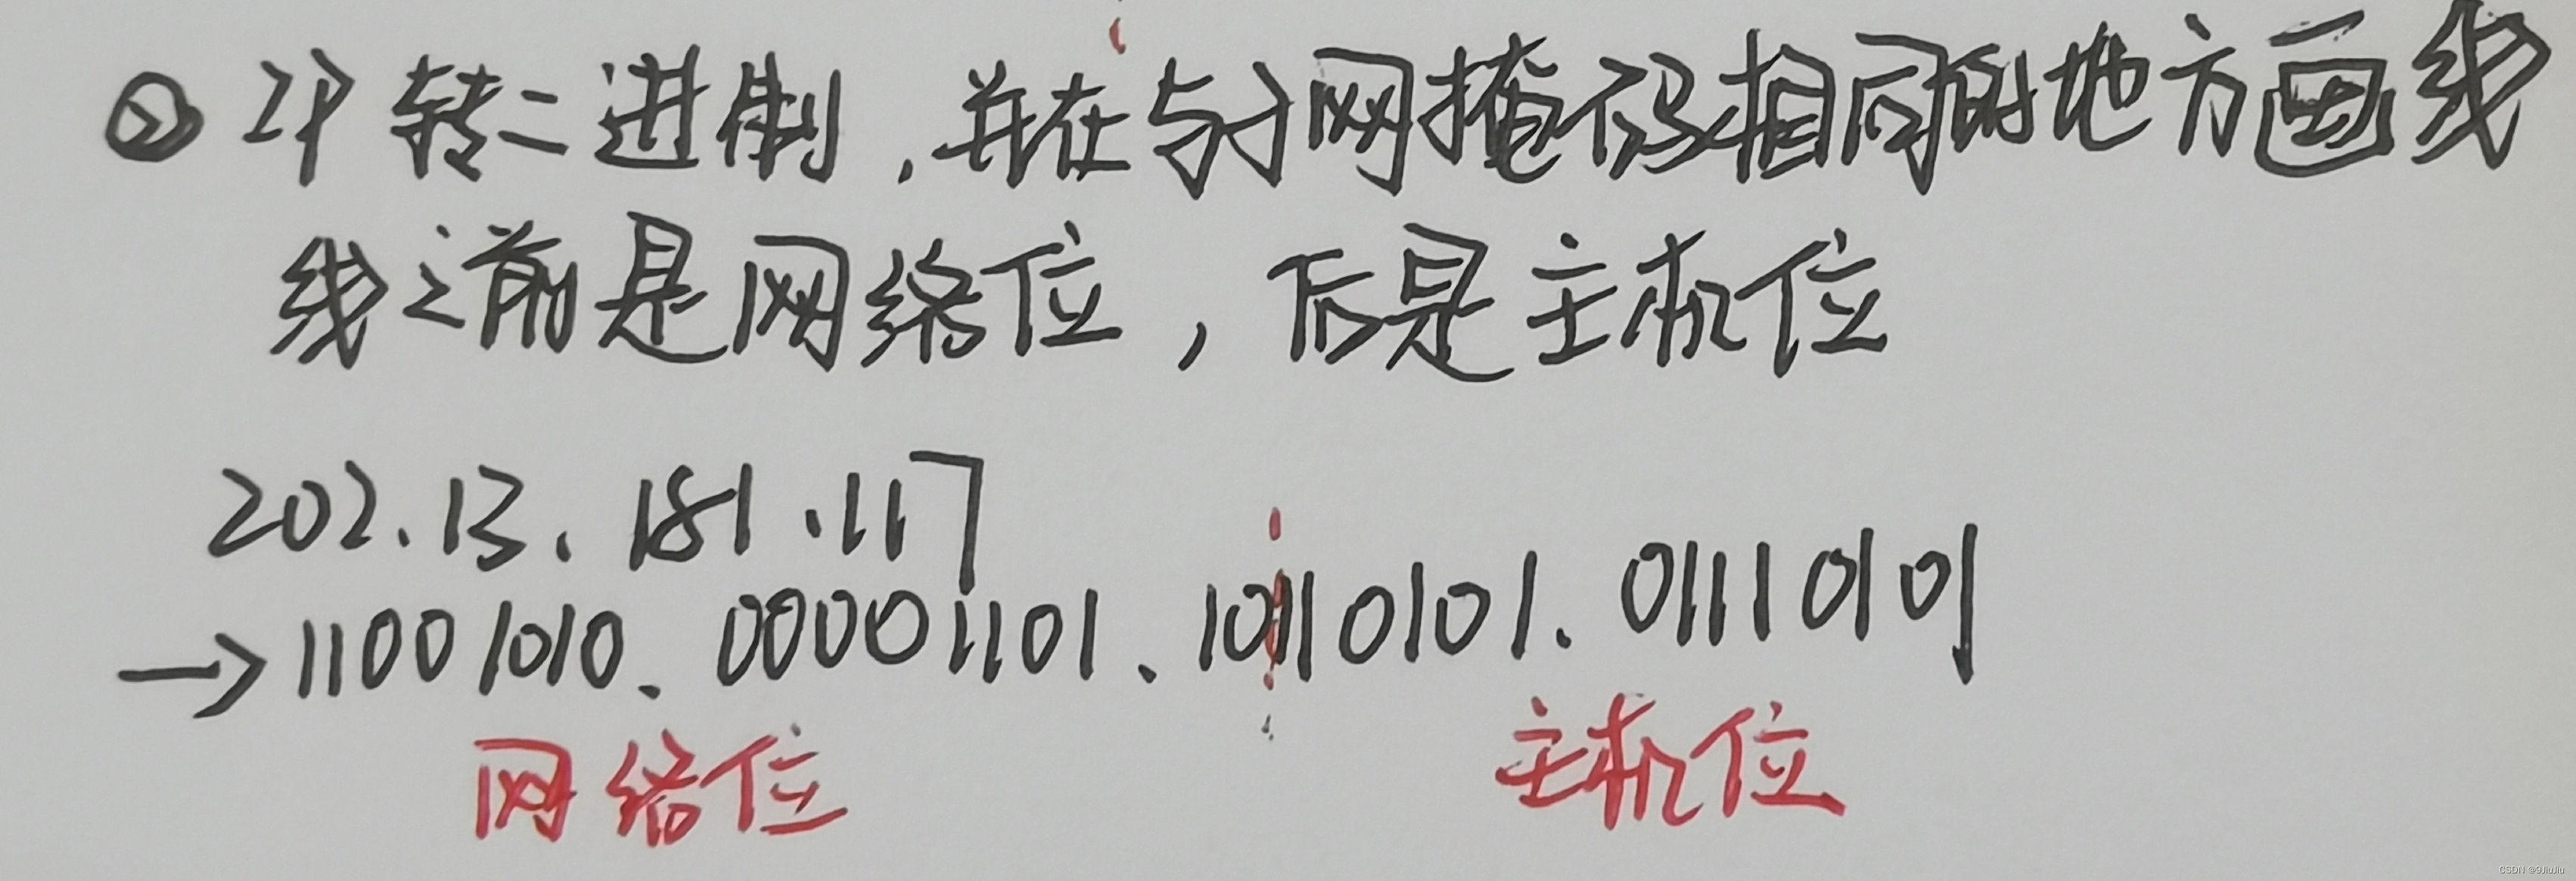 ② IP转二进制，并在与子网掩码相同的地方画线
线之前是网络位，后是主机位
202.13.181.117
→11001010.00001101.10110101.01110101
网络位 主机位
CSDN @9JiuJiu